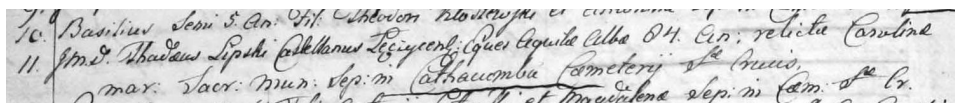 10. Basilius Semi 5. An: fil: Theodori et Antonina
11. Jm.D. Thadæus Lipski Castellanus Leçiycens: Eques Aquilæ Albæ 84. An: relictæ Carolinæ
mar: Sacr: mun: Sep: in Cathacumba Cæmeterij Stæ Crucis,
et Magdalenæ Sep: in Cæm: Stæ Cr.